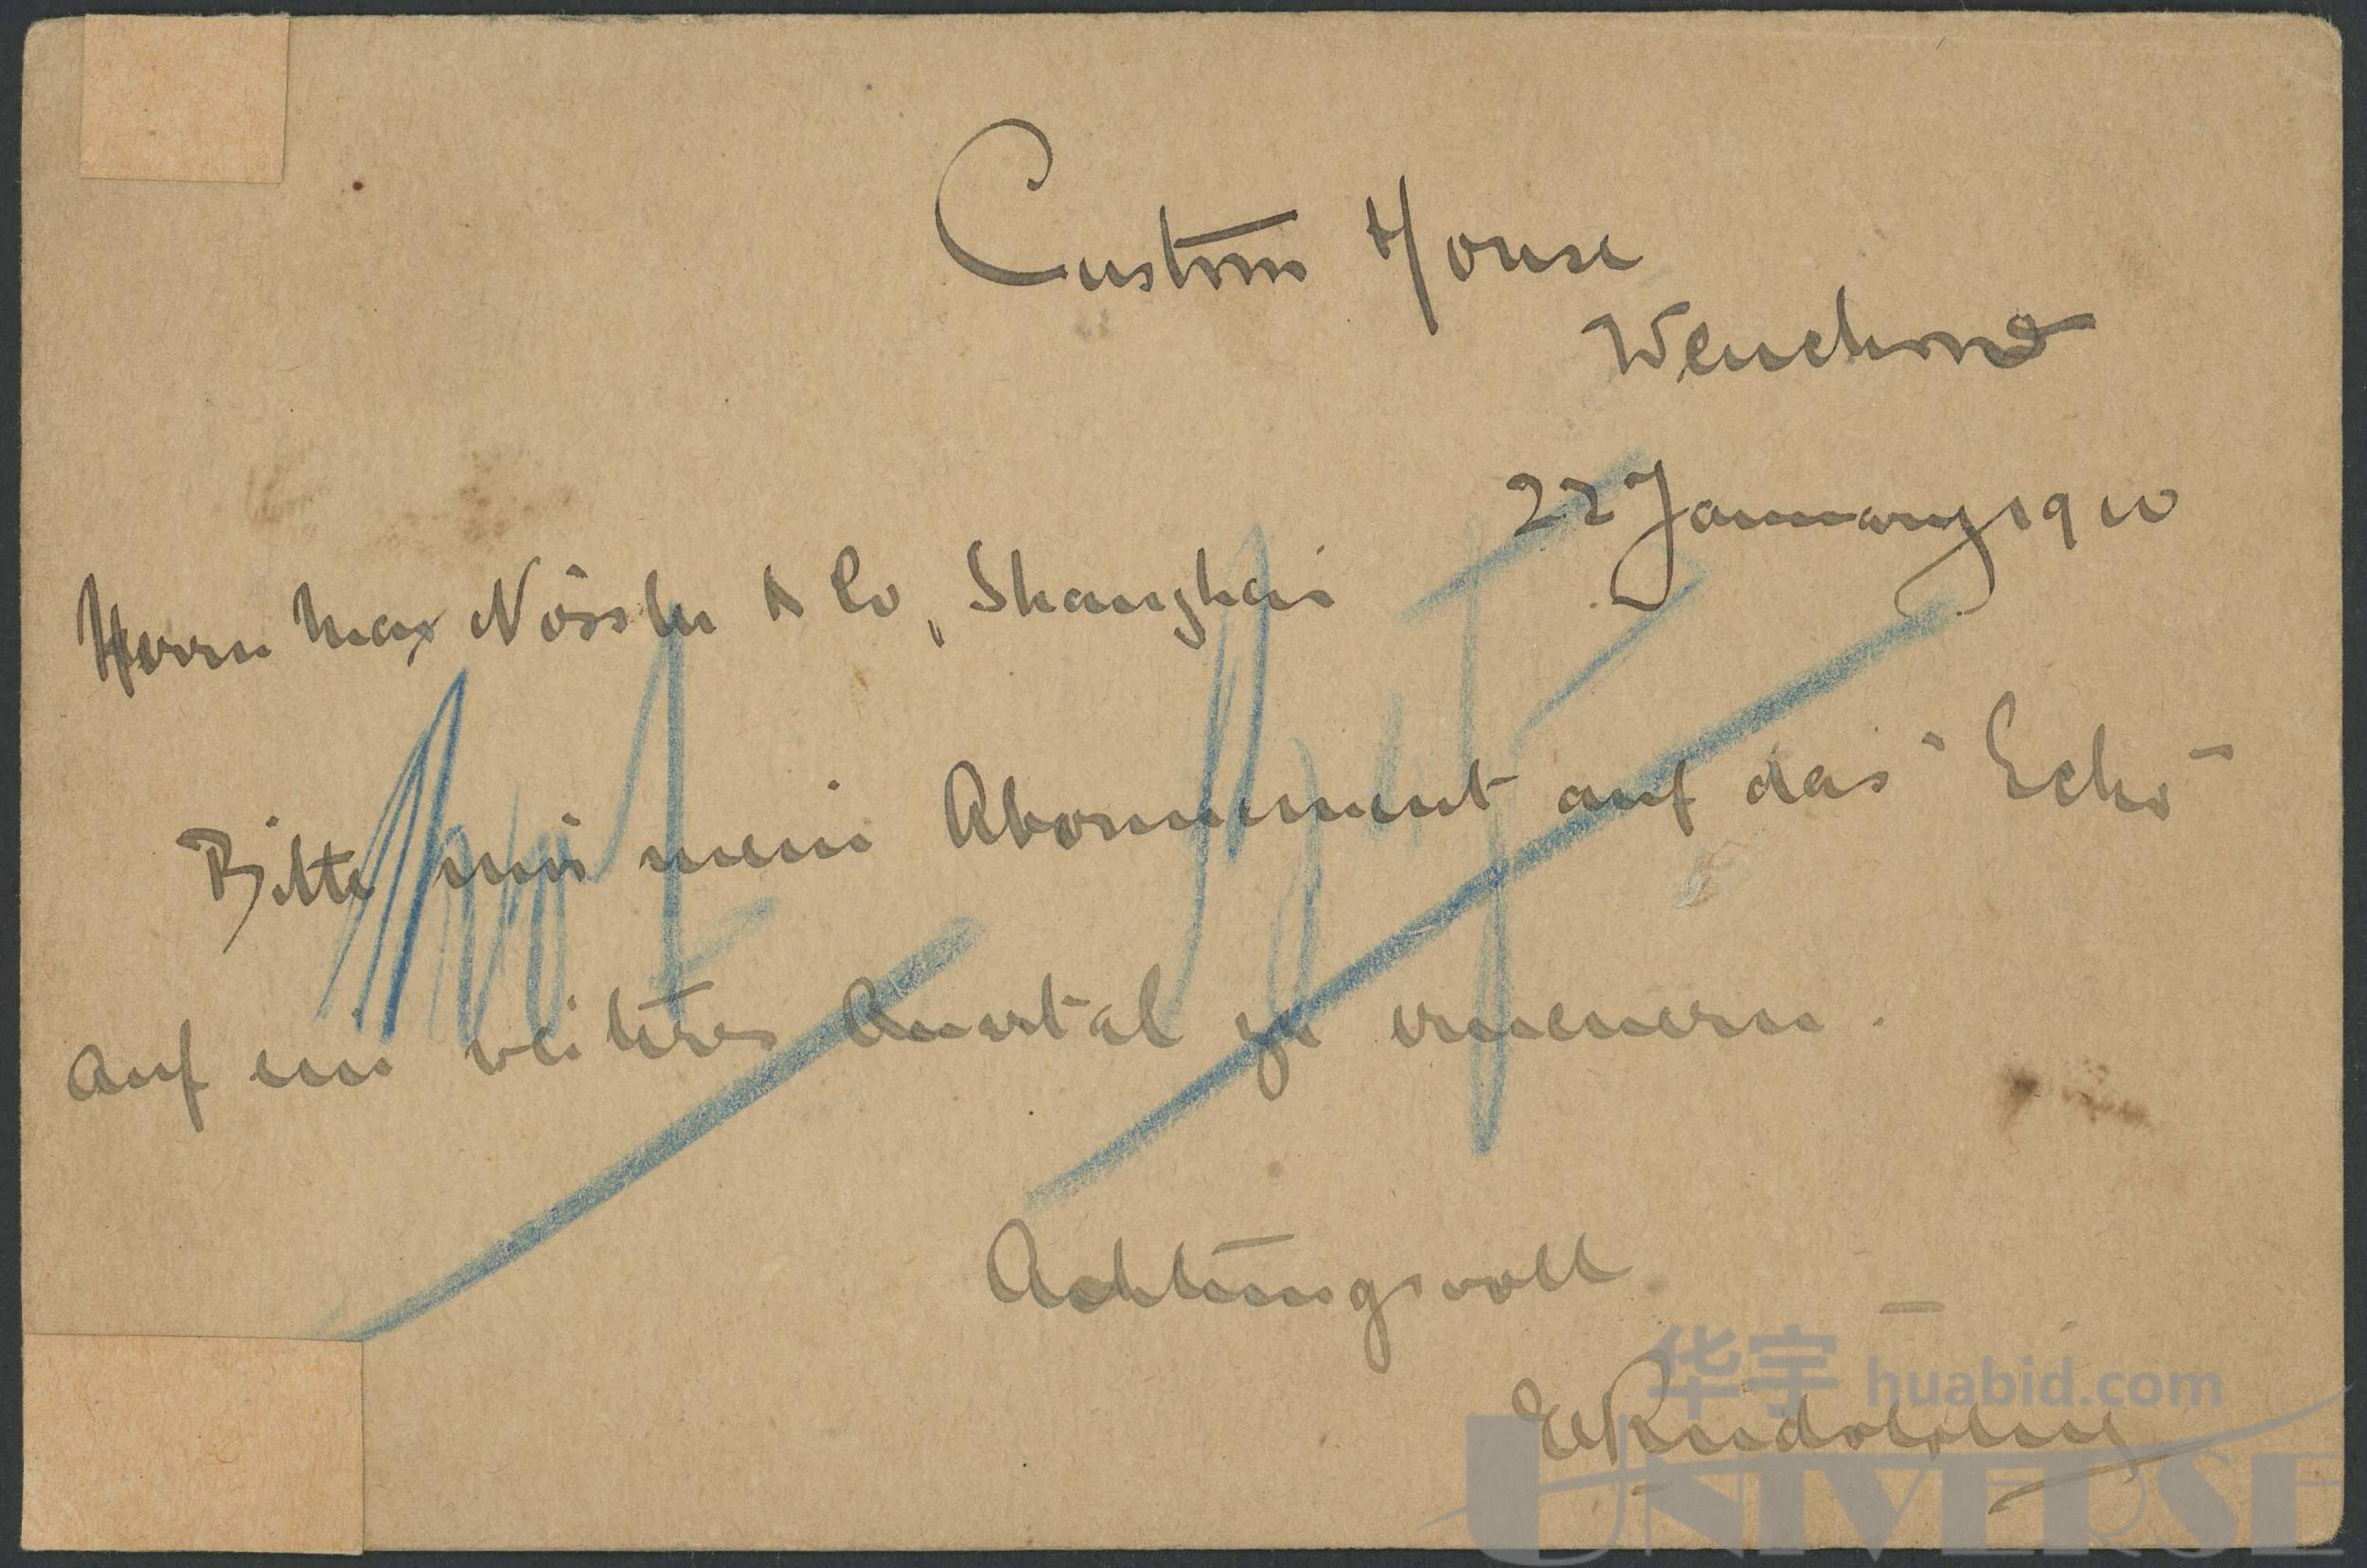 Custom House
Wenchow
22 January 1910
Herrn Max Nössler & Co, Shanghai
Bitte mir mein Abonnement auf das "Echo"
auf ein weiteres Quartal zu erneuern.
Achtungsvoll
华宇 huabid.com
UNIVERSE